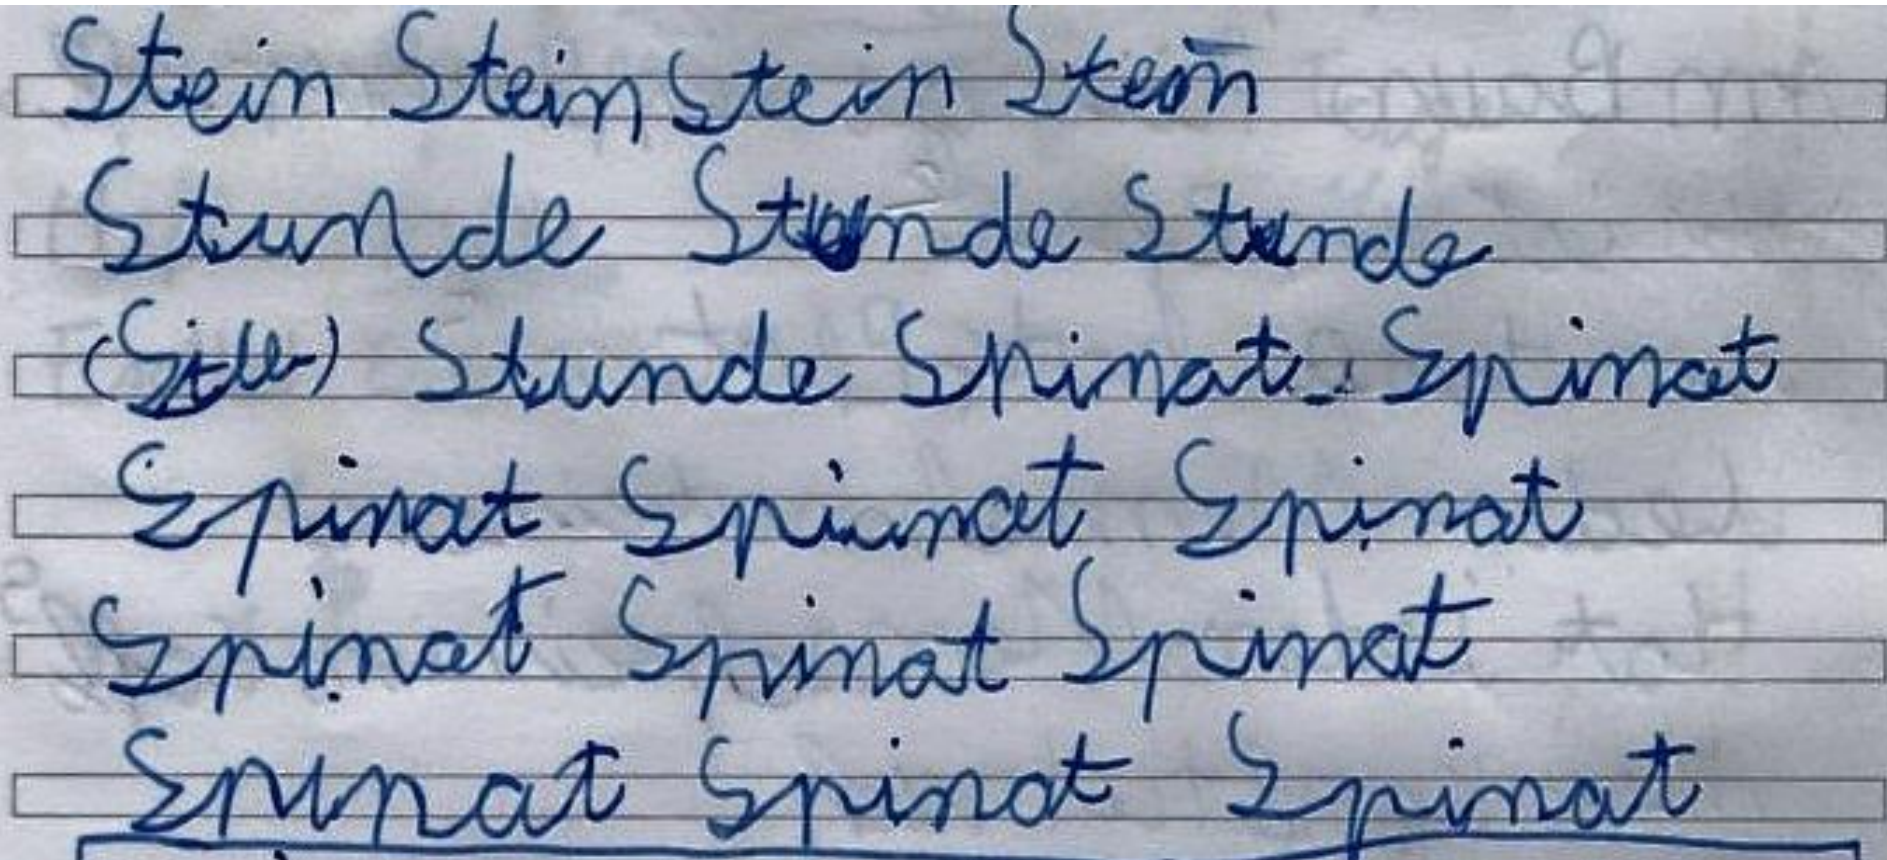 Stein Stein Stein Stein
Stunde Stunde Stunde
Stunde Spinat Spinat
Spinat Spinat Spinat
Spinat Spinat Spinat
Spinat Spinat Spinat